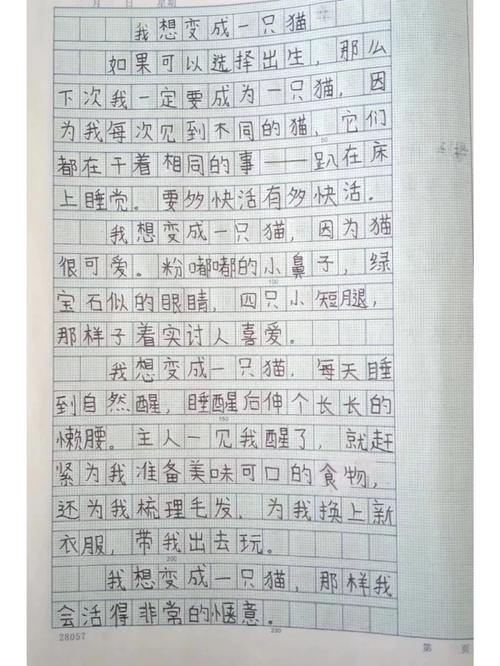 月 日 星期
我想变成一只猫
如果可以选择出生，那么
下次我一定要成为一只猫，因
为我每次见到不同的猫，它们
都在干着相同的事——趴在床
上睡觉。要多快活有多快活.
我想变成一只猫，因为猫
很可爱。粉嘟嘟的小鼻子，绿
宝石似的眼睛，四只小短腿，
那样子着实讨人喜爱。
我想变成一只猫，每天睡
到自然醒，睡醒后伸个长长的
懒腰。主人一见我醒了，就赶
紧为我准备美味可口的食物，
还为我梳理毛发，为我换上新
衣服，带我出去玩。
我想变成一只猫，那样我
会活得非常的惬意。
50
100
150
200
250
28057
第 页